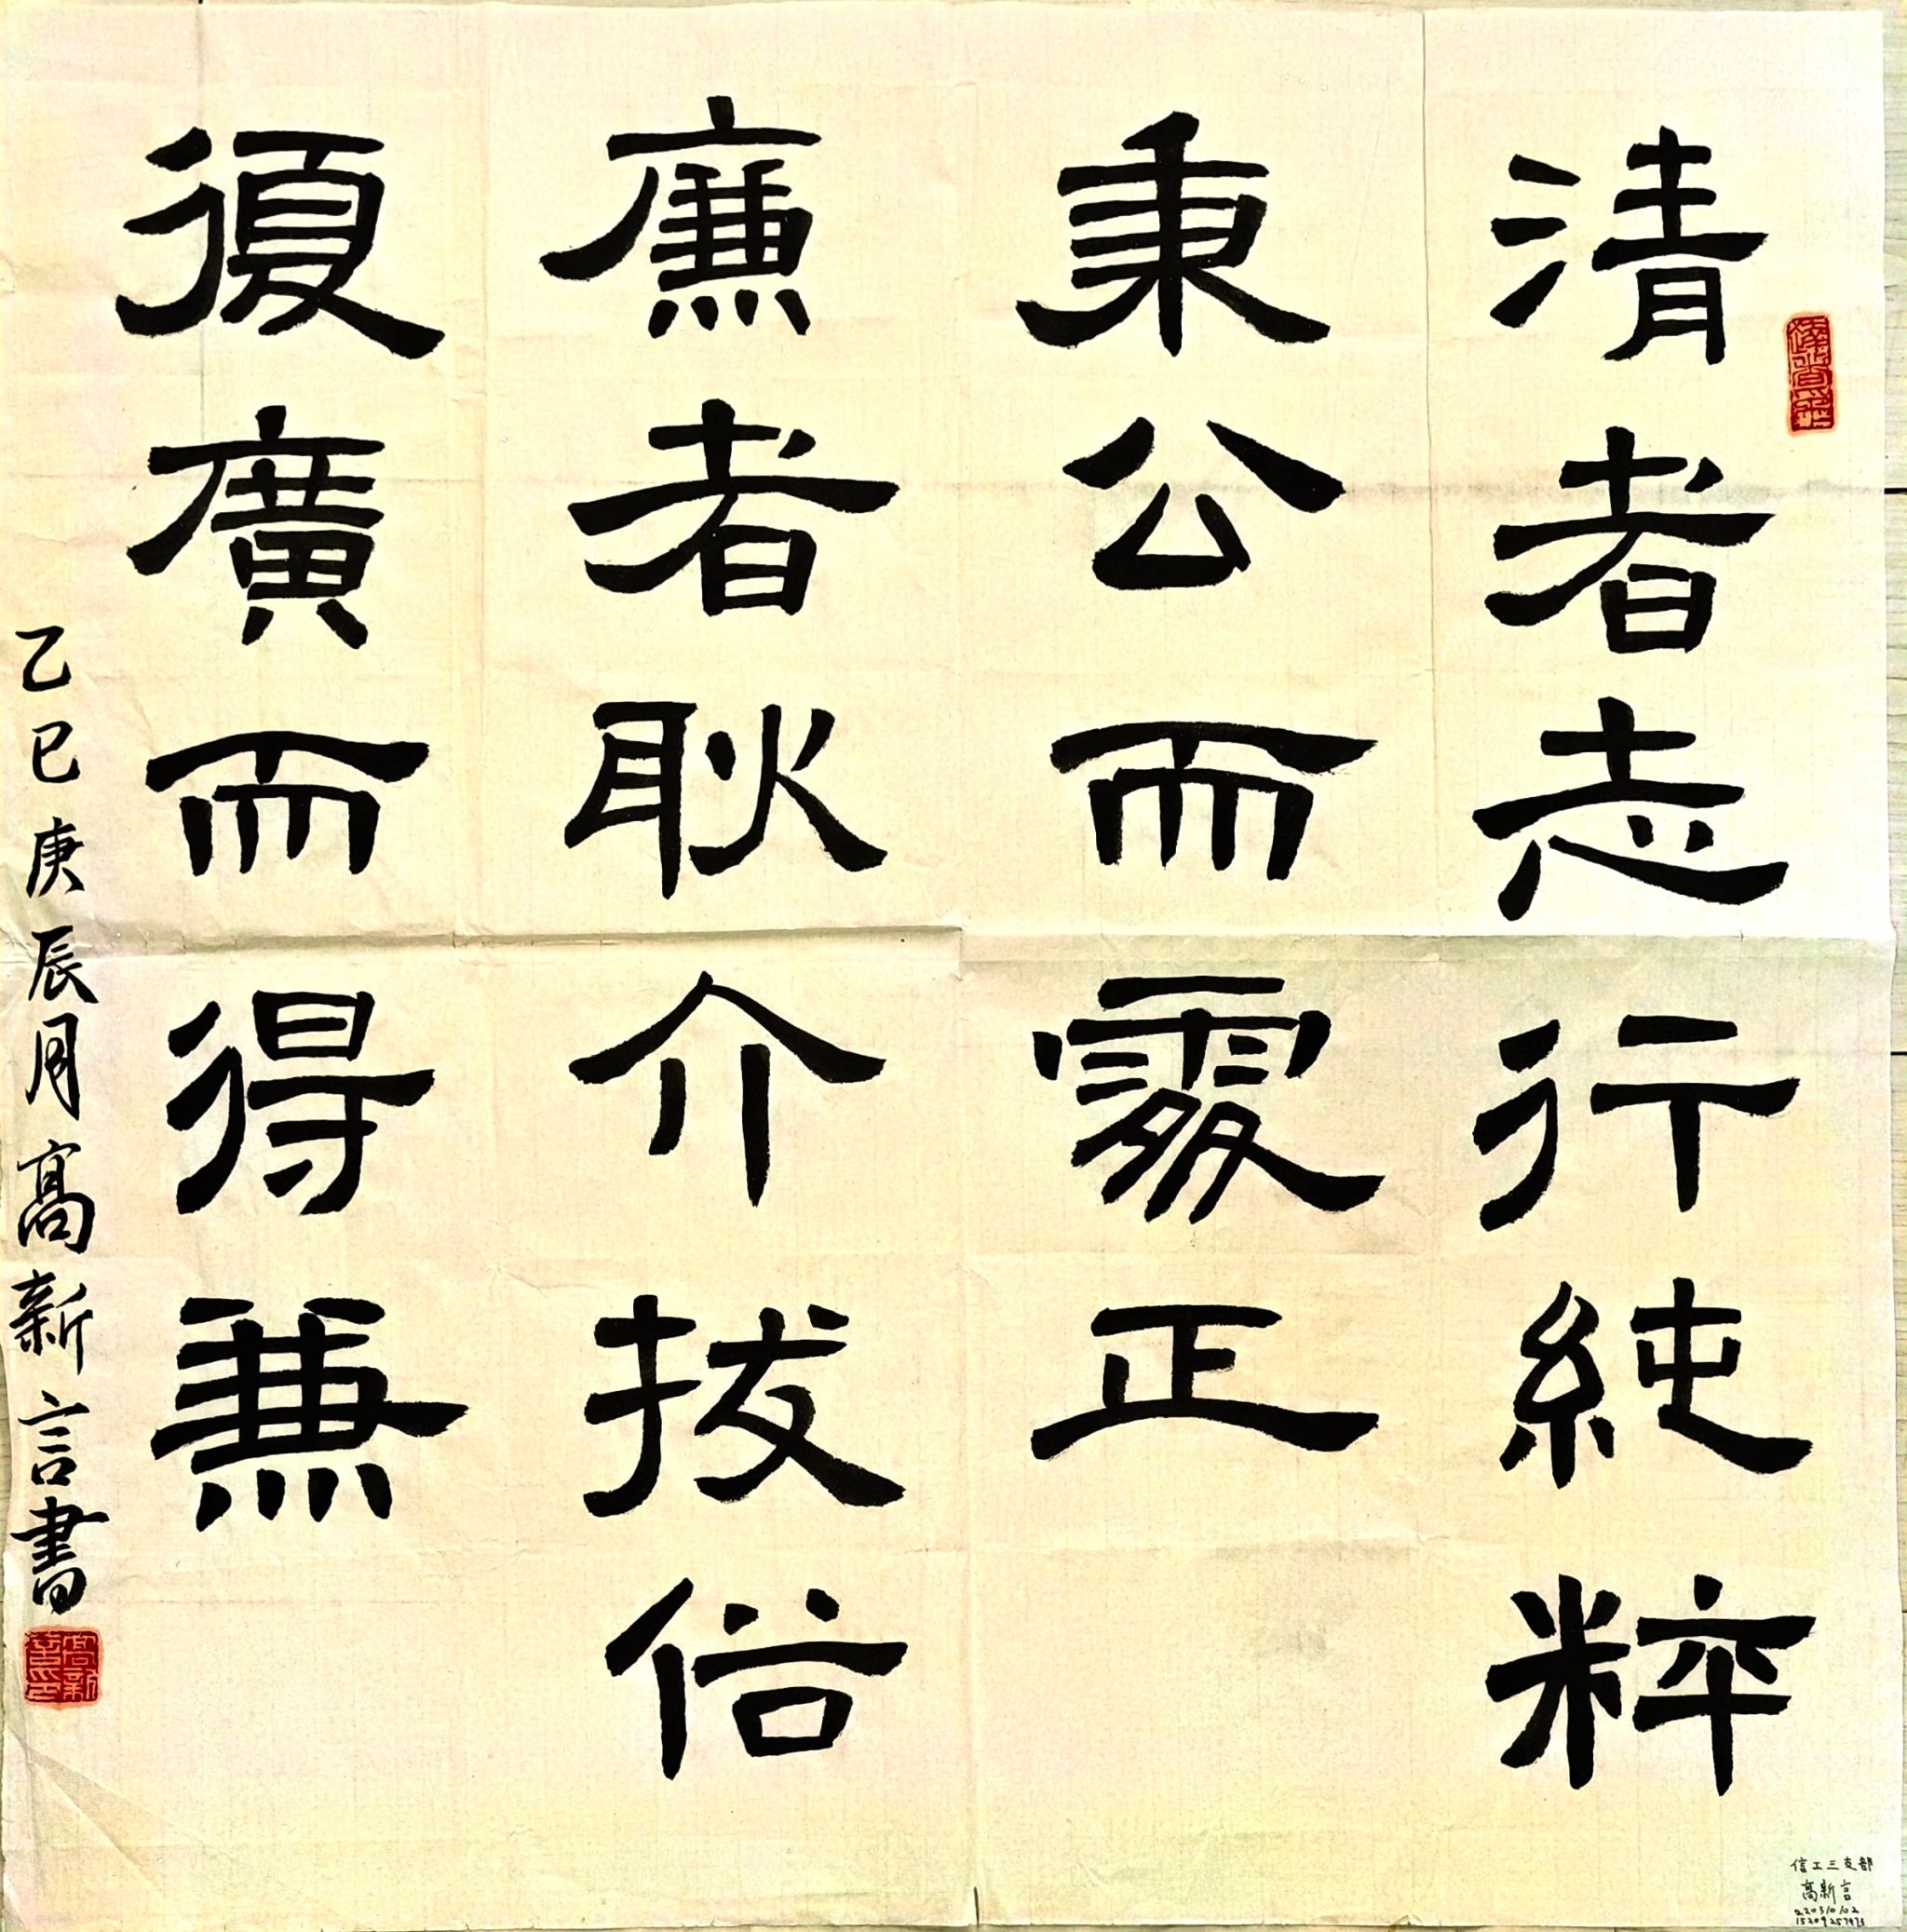 清者志行純粹
秉公而處正
廉者耿介拔俗
復廣而得兼
乙巳庚辰月高新言書
高新言印
信工三支部
高新言